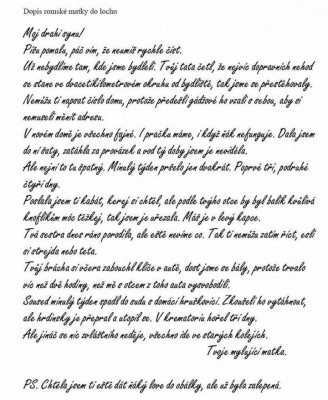 Dopis romské matky do lochu
Moj drahí synu!
Píšu pomalu, páč vím, že neumíš rychle číst.
Už nebydlíme tam, kde jsme bydleli. Tvůj tata četl, že nejvíc dopravních nehod
se stane ve dvacetikilometrovém okruhu od bydliště, tak jsme se přestěhovaly.
Nemůžu ti napsat číslo domu, protože předešlí gádžové ho vzali s sebou, aby si
nemuseli měnit adresu.
V novém domě je všechno fajné. I pračku máme, i když ňák nefunguje. Dala jsem
do ní šaty, zatáhla za provázek a vod tý doby jsem je neviděla.
Ale nejni to tu špatný. Minulý týden pršelo jen dvakrát. Poprvé tři, podruhé
čtyři dny.
Poslala jsem ti kabát, kerej si chtěl, ale podle tvýho otce by byl balík kvůlivá
knoflíkům móc těžkej, tak jsem je uřezala. Máš je v levý kapce.
Tvá sestra dnes ráno porodila, ale eště nevíme co. Tak ti nemůžu zatím říct, esli
si strejda nebo teta.
Tvůj brácha si včera zabouchl klíče v autě, dost jsme se bály, protože trvalo
víc než dvě hodiny, než mě s otcem z toho auta vysvobodili.
Soused minulý týden spadl do sudu s domácí hruškovicí. Zkoušeli ho vytáhnout,
ale hrdinsky je přepral a utopil se. V krematoriu hořel tři dny.
Ale jináč se nic zvláštního neděje, všechno ide ve starých kolejích.
Tvoje mylující matka.
PS. Chtěla jsem ti eště dát ňáký love do obálky, ale už byla zalepená.